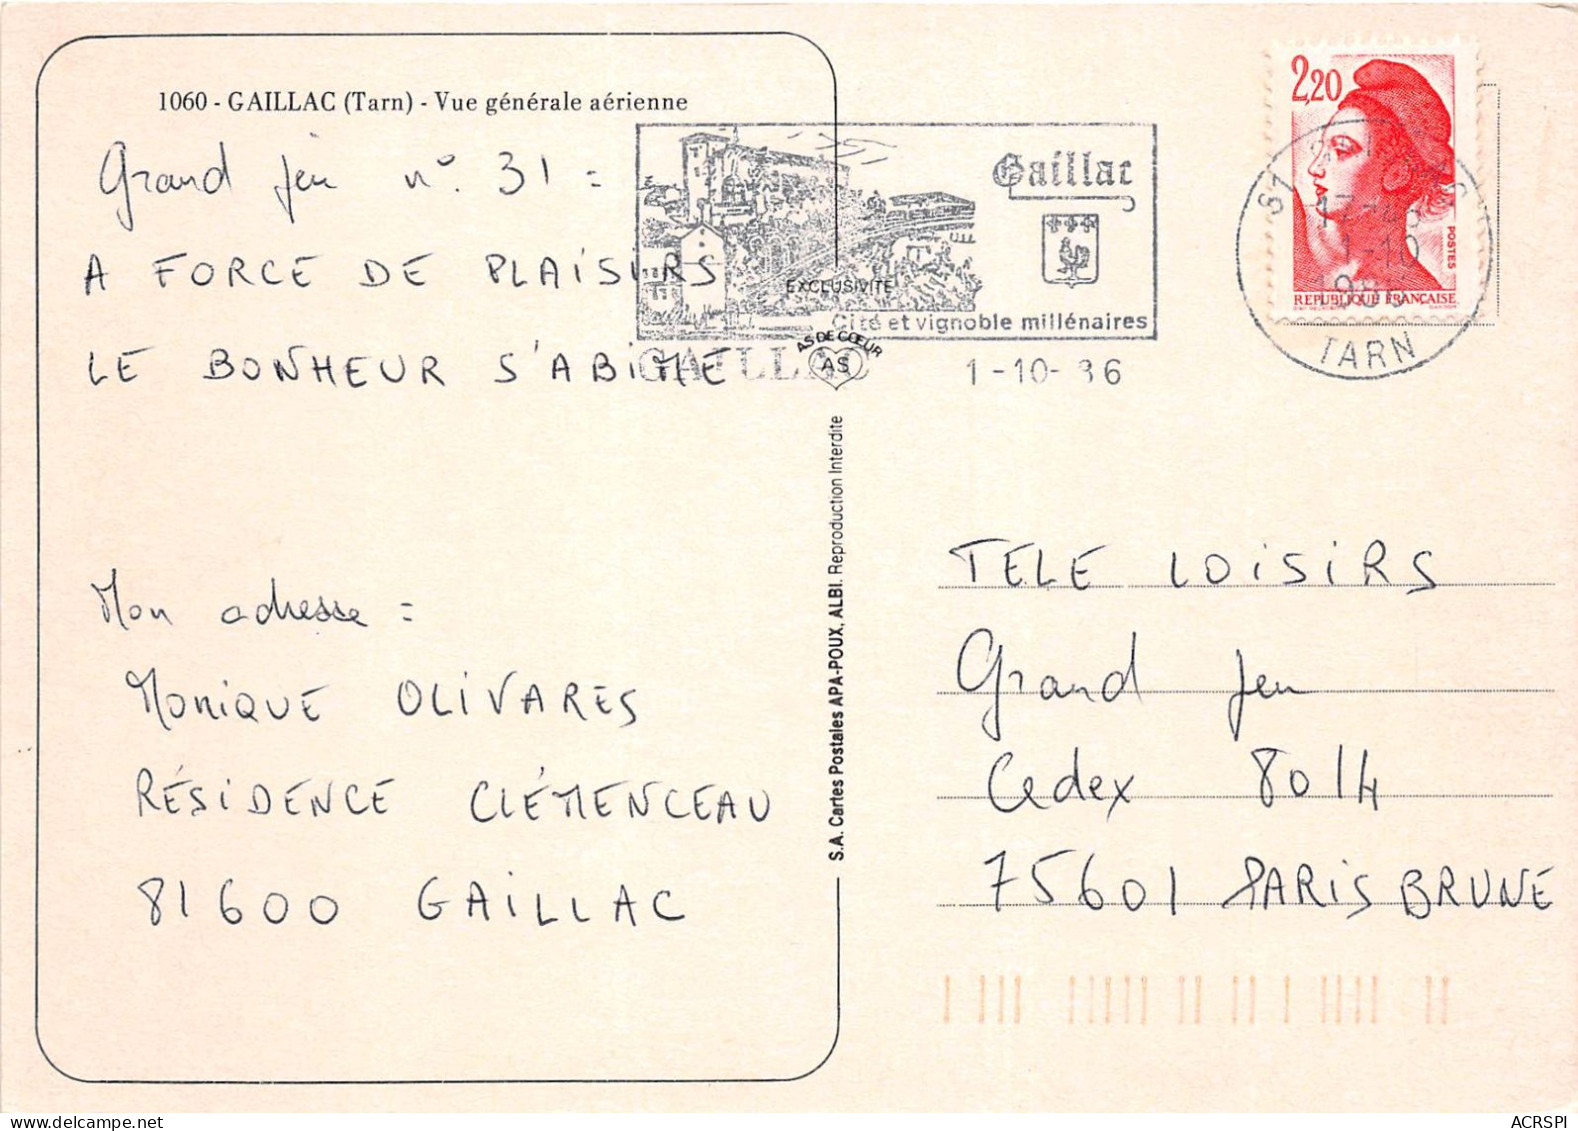 1060 - GAILLAC (Tarn) - Vue générale aérienne
Grand jeu n°. 31 =
A FORCE DE PLAiSiRS
LE BONHEUR S'ABiME
Mon adresse =
MONIQUE OLIVARES
RÉSiDENCE CLÉMENCEAU
81600 GAiLLAC
Gaillac
Cité et vignoble millénaires
GAILLAC
1-10-86
EXCLUSIVITÉ
AS DE CŒUR
AS
S.A. Cartes Postales APA-POUX, ALBI. Reproduction Interdite
2,20
POSTES
REPUBLIQUE FRANÇAISE
1-10
TARN
TELE LOiSiRS
Grand jeu
Cedex 8014
75601 PARiS BRUNE
ACRSPI